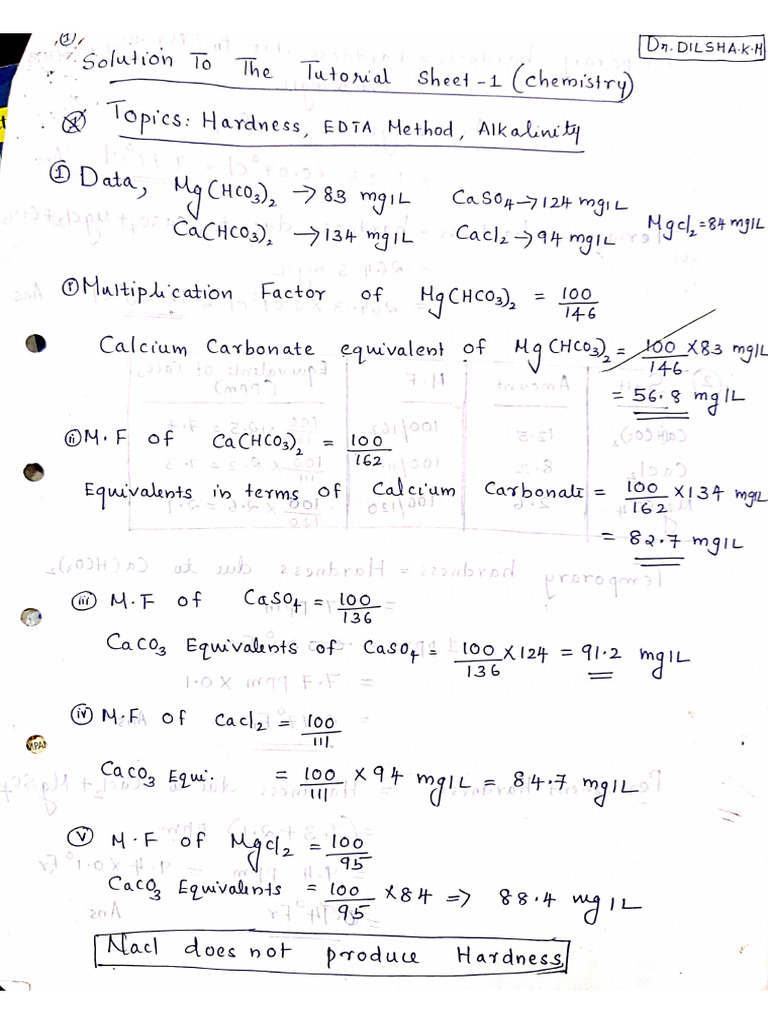 (1)
Dr. DILSHA.K.H
Solution To The Tutorial Sheet-1 (Chemistry)
Topics: Hardness, EDTA Method, Alkalinity
① Data, Mg(HCO3)2 → 83 mg/L CaSO4 → 124 mg/L
Ca(HCO3)2 → 134 mg/L CaCl2 → 94 mg/L MgCl2 = 84 mg/L
(i) Multiplication Factor of Mg(HCO3)2 = 100/146
Calcium Carbonate equivalent of Mg(HCO3)2 = 100/146 × 83 mg/L
= 56.8 mg/L
(ii) M.F of Ca(HCO3)2 = 100/162
Equivalents in terms of Calcium Carbonate = 100/162 × 134 mg/L
= 82.7 mg/L
(iii) M.F of CaSO4 = 100/136
CaCO3 Equivalents of CaSO4 = 100/136 × 124 = 91.2 mg/L
(iv) M.F of CaCl2 = 100/111
CaCO3 Equi. = 100/111 × 94 mg/L = 84.7 mg/L
(v) M.F of MgCl2 = 100/95
CaCO3 Equivalents = 100/95 × 84 => 88.4 mg/L
NaCl does not produce Hardness